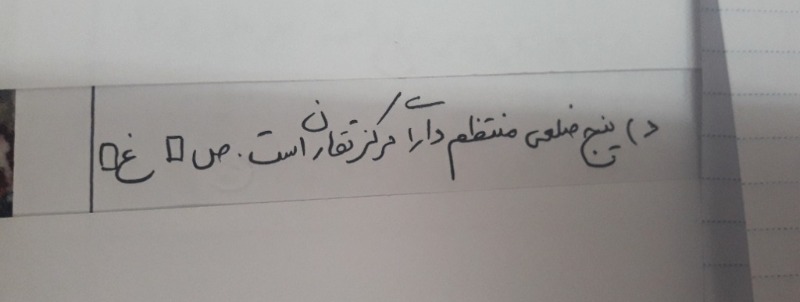 د) پنج ضلعی منتظم دارای مرکز تقارن است. ص □ غ □